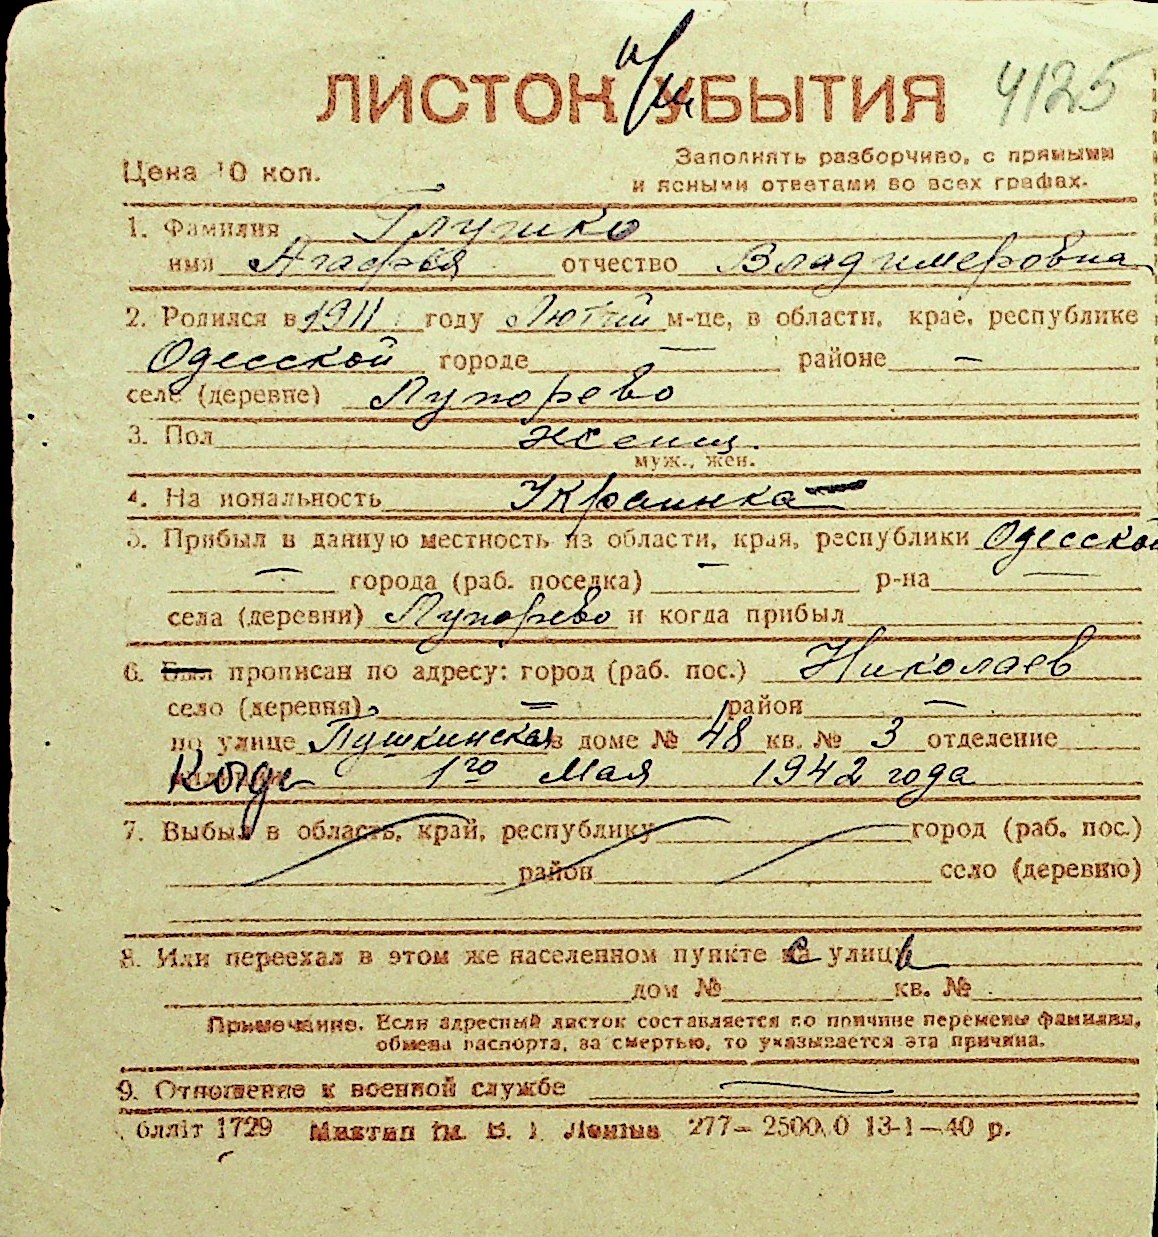 ЛИСТОК УБЫТИЯ 4125
Цена 10 коп. Заполнять разборчиво, с прямыми
и ясными ответами во всех графах.
1. Фамилия Глушко
имя Агафья отчество Владимеровна
2. Родился в 1911 году Лютий м-це, в области, крае, республике
Одесской городе — районе —
селе (деревне) Лупорево
3. Пол женщ.
муж., жен.
4. На иональность Украинка
5. Прибыл в данную местность из области, края, республики Одесской
— города (раб. поселка) — р-на —
села (деревни) Лупорево и когда прибыл
6. Был прописан по адресу: город (раб. пос.) Николаев
село (деревня) — район —
по улице Пушкинская в доме № 48 кв. № 3 отделение
Когда 1го Мая 1942 года
7. Выбыл в область, край, республику город (раб. пос.)
район село (деревню)
8. Или переехал в этом же населенном пункте с улицы
дом № кв. №
Примечание. Если адресный листок составляется по причине перемены фамилии,
обмена паспорта, за смертью, то указывается эта причина.
9. Отношение к военной службе —
блліт 1729 ім. В. І. Леніна 13-1-40 р.